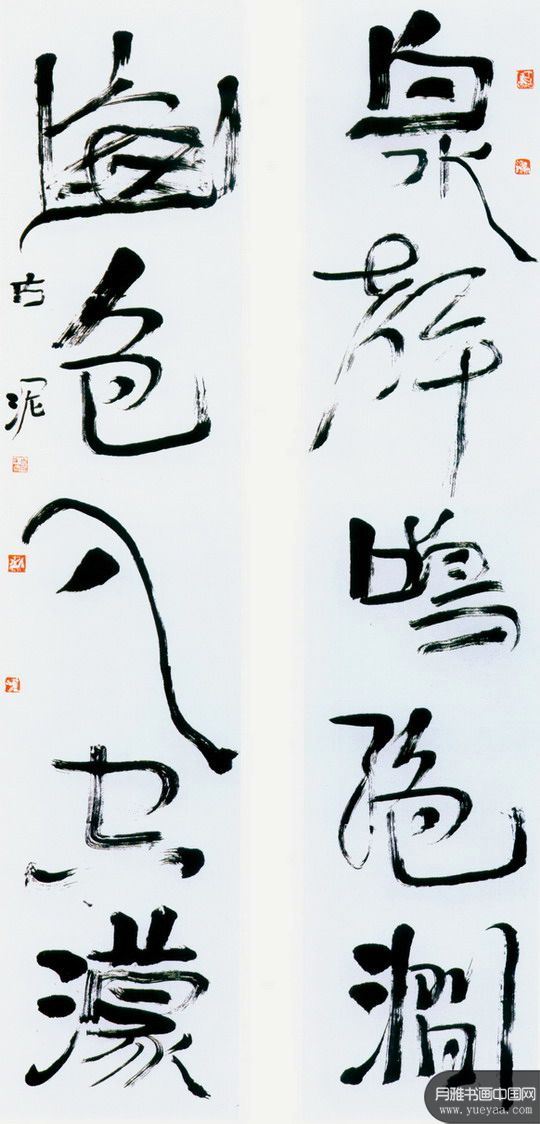 泉聲鳴絕澗
色入空濛
古泥
月雅书画中国网
www.yueyaa.com